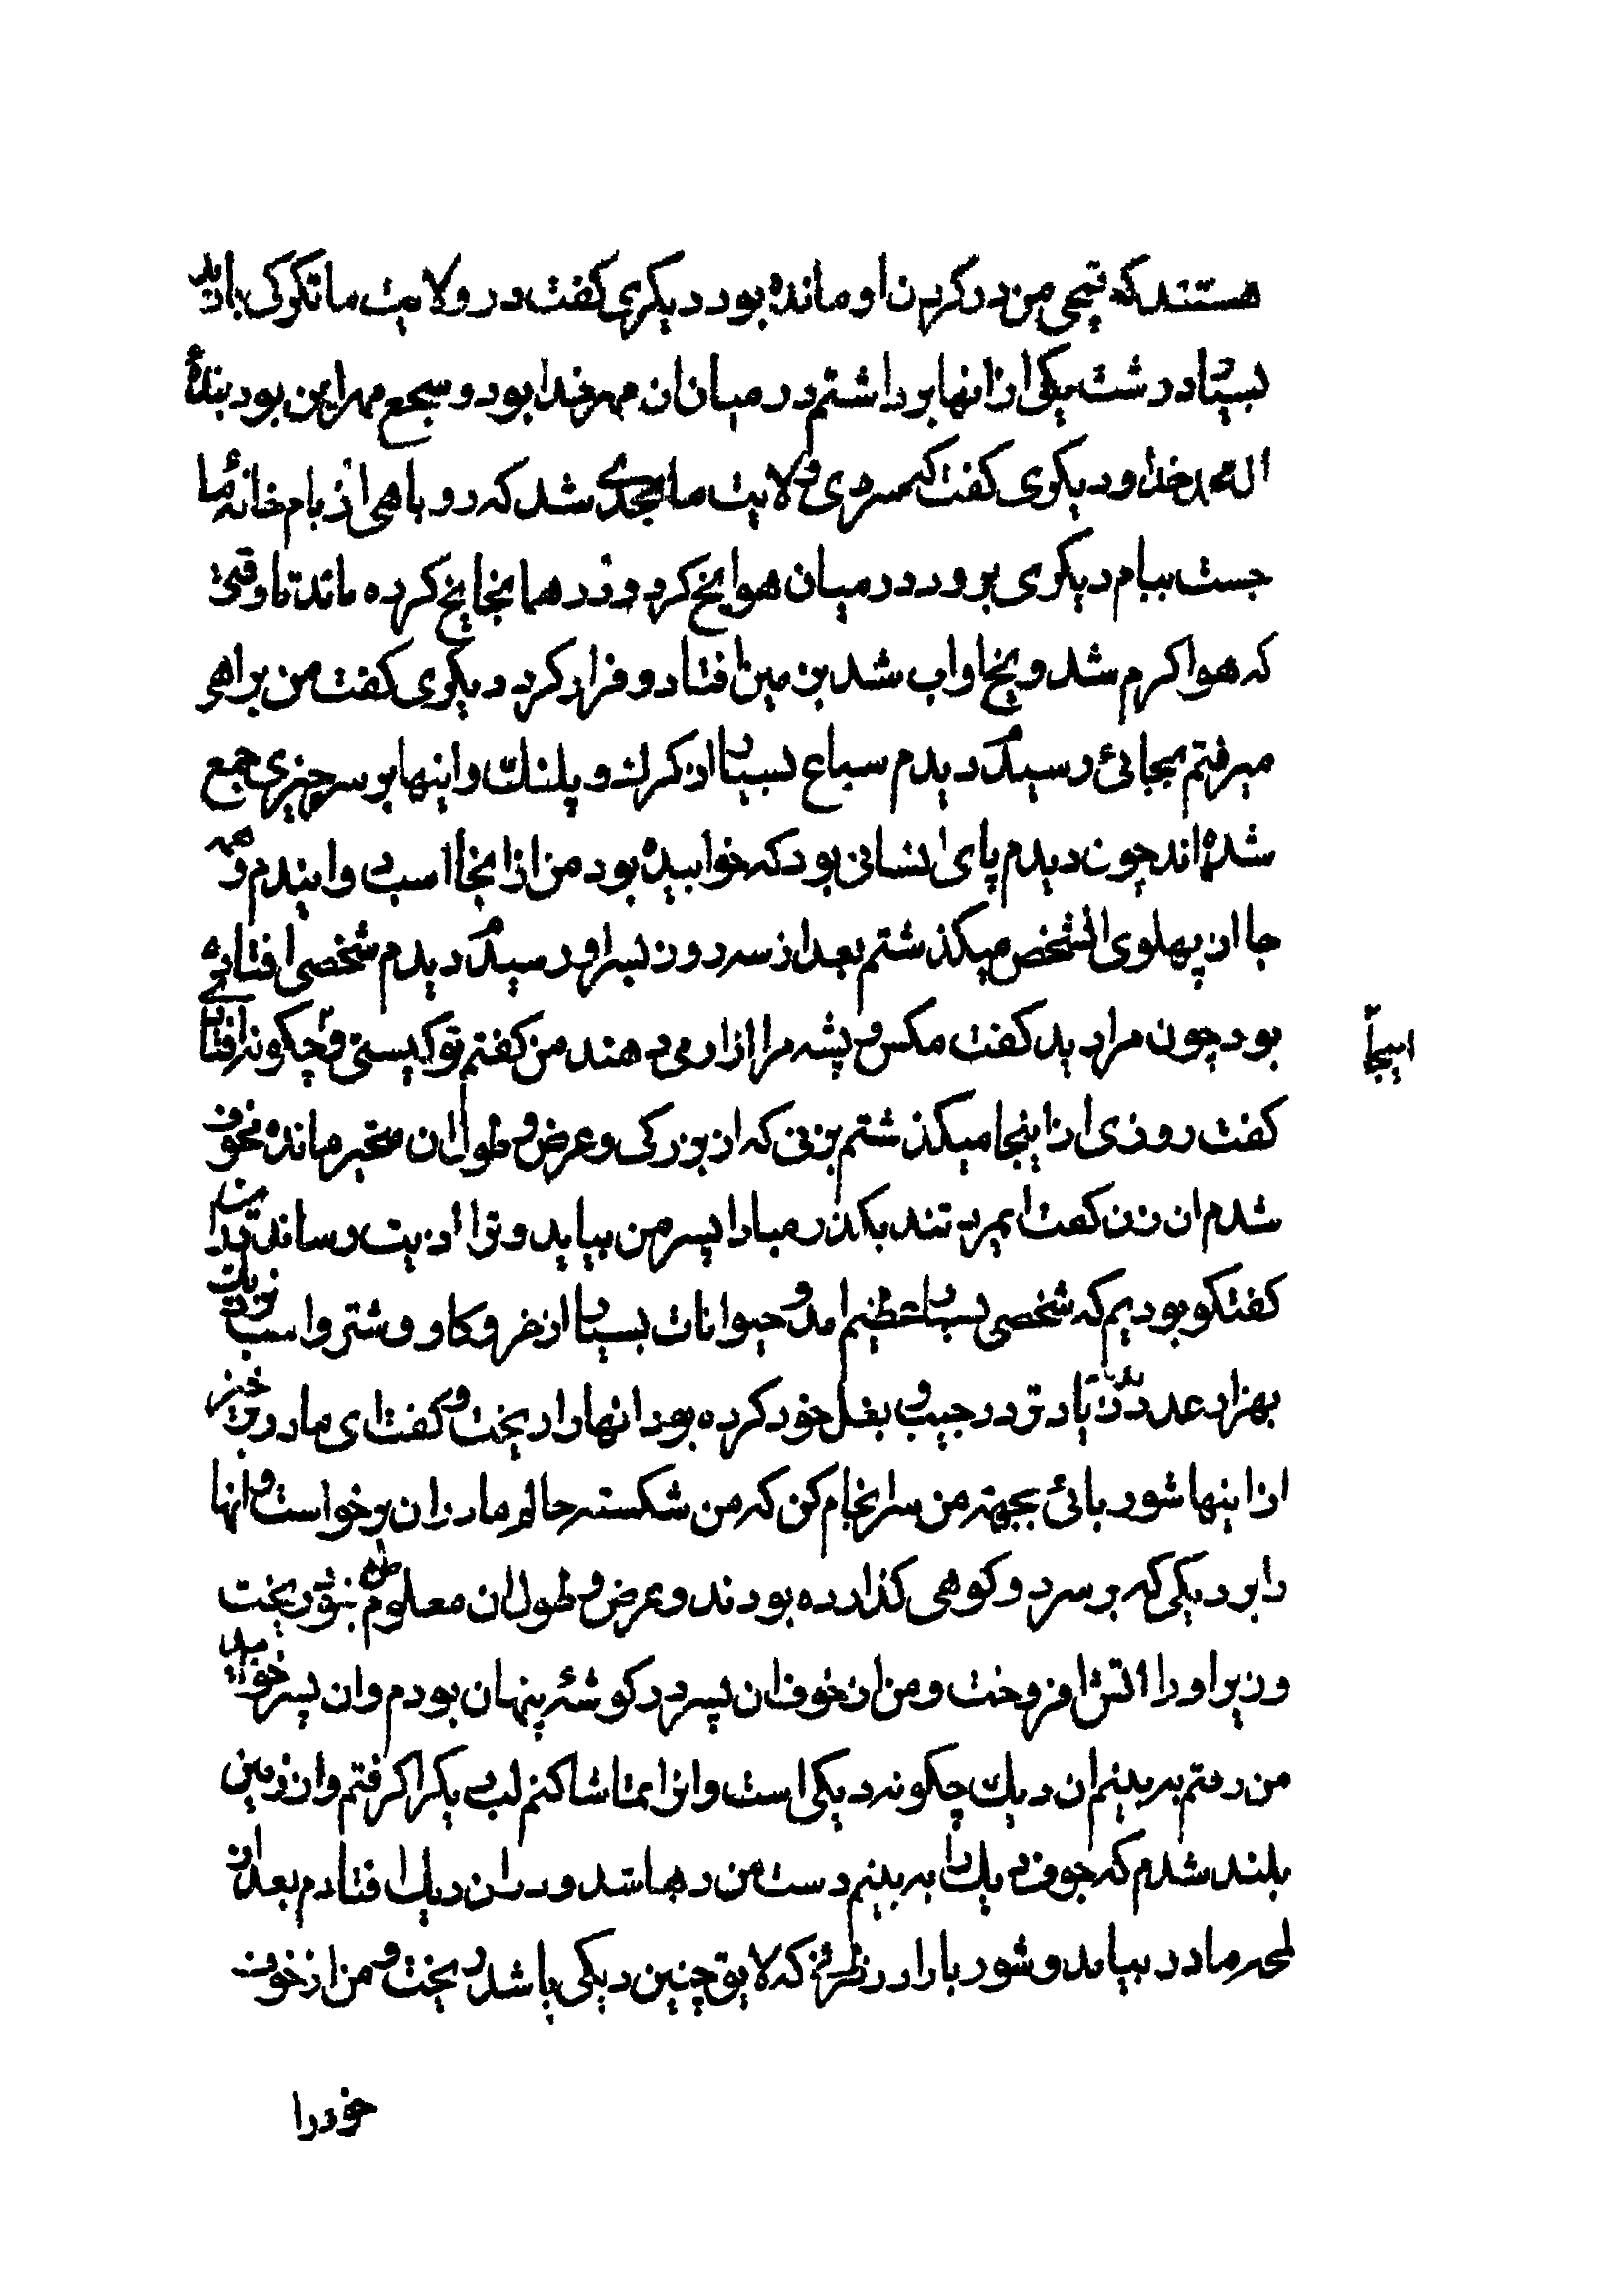 هستند که تیمچی من در کردن او مانده بود دیکری کفت در ولایت ما تکرکی بارید
بسیار درشت یکی از انها برداشتم در میان ان مهر خدا بود و سجع مهر این بود بندهٔ
اله محمد خدا و دیکری کفت که سردی ولایت ما بحدی شد که روباهی از بام خانهٔ ما
جست ببام دیکری برود در میان هوا یخ کرد و در همانجا یخ کرده ماند تا وقتی
که هوا کرم شد و یخ او اب شد بزمین افتاد و فرار کرد دیکری کفت من براهی
میرفتم بجائی رسیدم دیدم سباع بسیار از کرک و پلنک و اینها بر سر چیزی جمع
شده‌اند چون دیدم پای انسانی بود که خوابیده بود من از انجا اسب دوانیدم و همه
جا از پهلوی انشخص میکذشتم بعد از سه روز بسر او رسیدم دیدم شخصی افتاده
بود چون مرا دید کفت مکس و پشه مرا ازار می‌دهند من کفتم تو کیستی و چکونه افتاده
اینجا
کفت روزی از اینجا میکذشتم بزنی که از بزرکی و عرض و طول ان متحیر مانده محو
شدم ان زن کفت ایمرد تند بکذر مبادا پسر من بیاید و ترا اذیت رساند در این
کفتکو بودیم که شخصی بسیار عظیم امد و حیوانات بسیار از خر و کاو و شتر و اسب نزدیک
بهزار عدد یا زیادتر در جیب و بغل خود کرده بود انها را ریخت و کفت ای مادر برخیز
از اینها شوربائی بجهته من سرانجام کن که من شکسته حالم مادر ان برخواست و انها
را بر دیکی که بر سر دو کوهی کذارده بودند و عرض و طول ان معلوم من نبود ریخت
و زیر او را اتش افروخت و من از خوف ان پسر در کوشهٔ پنهان بودم و ان پسر خوابید
من رفتم به بینم ان دیک چکونه دیکی است و انرا تماشا کنم لب دیکرا کرفتم و از زمین
بلند شدم که جوف دیک را به بینم دست من رها شد و در ان دیک افتادم بعد از
لمحه مادر بیامد و شوربا را در ظرفی که لایق چنین دیکی باشد ریخت و من از خوف
خود را